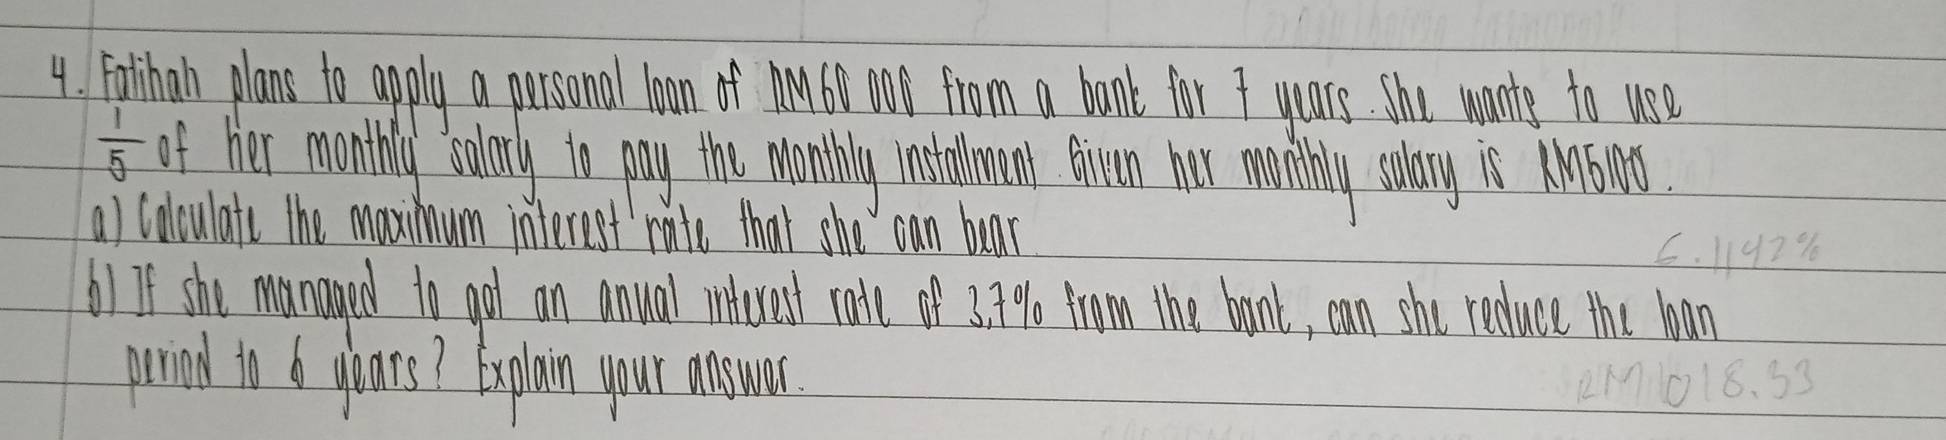 4. Fatihah plans to apply a personal loan of RM60 000 from a bank for 7 years. She wants to use
1/5 of her monthly salary to pay the monthly installment. Given her monthly salary is RM5100.
a) Calculate the maximum interest rate that she can bear
6.1142%
b) If she managed to get an anual interest rate of 3.7% from the bank, can she reduce the loan
period to 6 years? Explain your answer.
RM1018.33